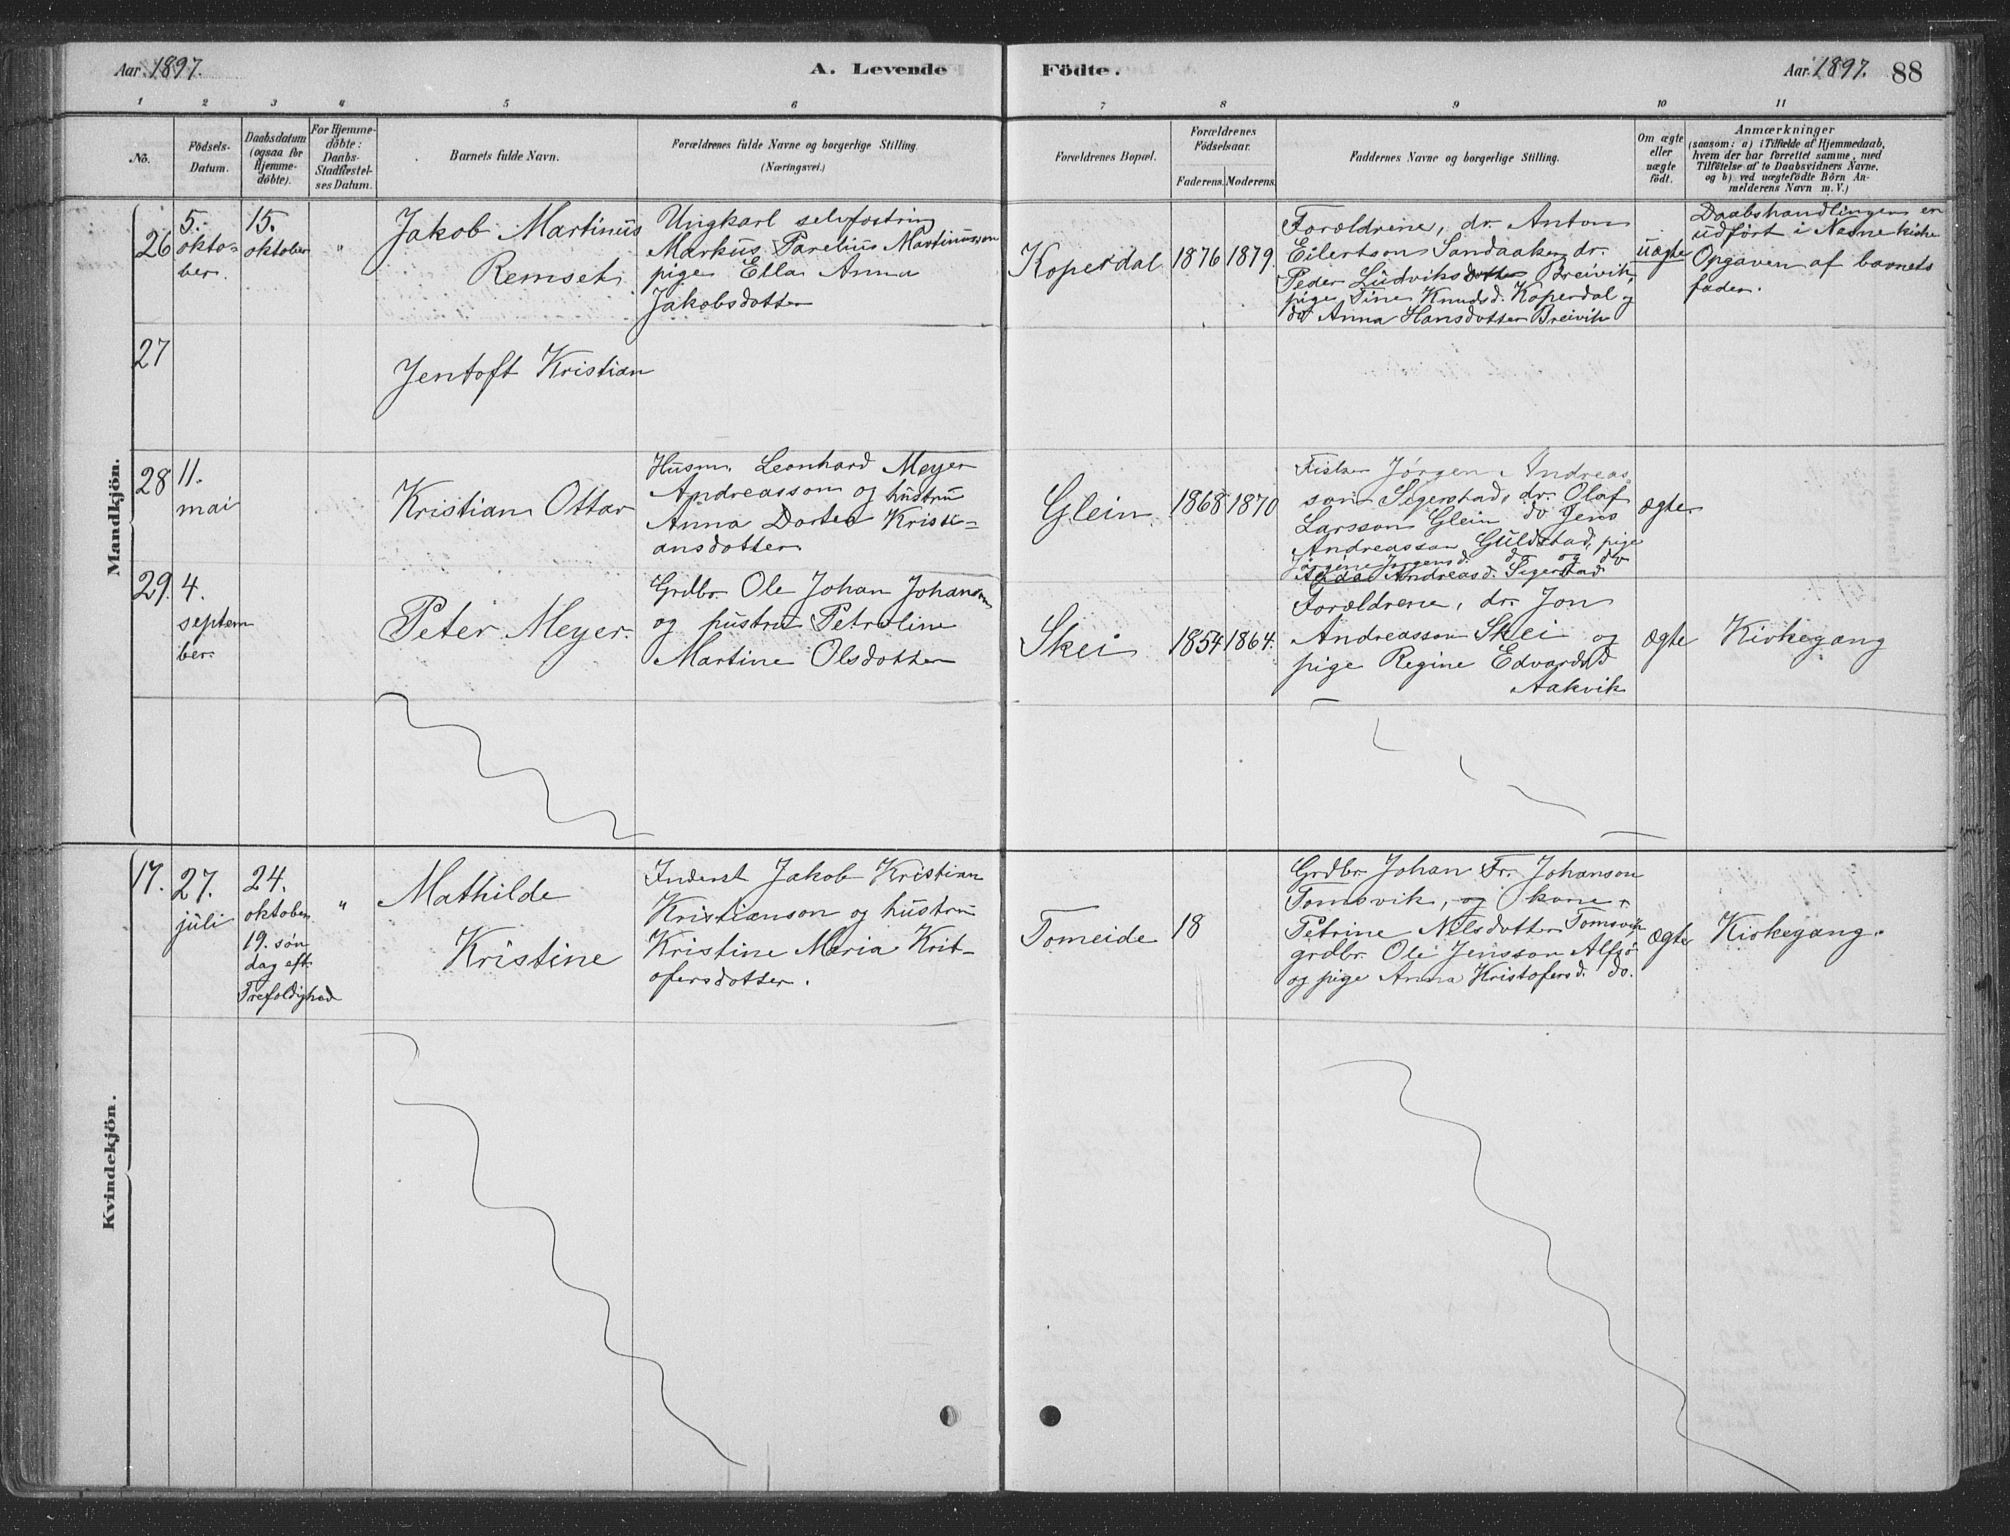 Aar 1897.
A. Levende
Födte.
Aar 1897. 88
1 2 3 4 5 6 7 8 9 10 11
No.
Födsels-
Datum.
Daabsdatum
(ogsaa for
Hjemme-
döbte).
For Hjemme-
döbte:
Daabs-
Stadfæstel-
ses Datum.
Barnets fulde Navn.
Forældrenes fulde Navne og borgerlige Stilling.
(Næringsvei.)
Forældrenes Bopæl.
Forældrenes
Födselsaar.
Faderens. Moderens.
Faddernes Navne og borgerlige Stilling.
Om ægte
eller
uægte
födt.
Anmærkninger
(saasom: a) i Tilfælde af Hjemmedaab,
hvem der har forrettet samme, med
Tilföielse af to Daabsvidners Navne,
og b) ved uægtefödte Börn An-
melderens Navn m. V.)
Mandkjön.
26
5.
okto-
ber.
15.
oktober
"
Jakob Martinus
Remset
Ungkarl selvfostring
Markus Parelius Martinusson
pige Ella Anna
Jakobsdotter
Koperdal
1876
1879.
Forældrene, dr. Anton
Eilertson Sandaaker, dr.
Peder Ludviks Breivik,
pige Tine Knudsd. Koperdal og
do Anna Hansdotter Breivik
uægte
Daabshandlingen er
udført i Nesne kirke
Opgaven af barnets
fader.
27
Jentoft Kristian
28
11.
mai
Kristian Ottar
Husm. Leonhard Meyer
Andreasson og hustru
Anna Dortea Kristi-
ansdotter
Glein
1868
1870
Fisker Jørgen Andreas
son Sigerstad, dr. Olaf
Larsson Glein do Jens
Andreasson Guldstad, pige
Jørgine Jørgensd. do og do
Andreasd. Sigerstad
ægte
29.
4.
septem
ber.
Peter Meyer.
Grdbr. Ole Johan Johanson
og hustru Petroline
Martine Olsdotter
Skei
1854
1864.
Forældrene, dr. Jon
Andreasson Skei og
pige Regine Edvardsd
Aakvik
ægte
Kirkegang
Kvindekjön.
17.
27.
juli
24.
oktober
19. søn
dag eft.
Trefoldighed
"
Mathilde
Kristine
Inderst Jakob Kristian
Kristianson og hustru
Kristine Maria Krit-
ofersdotter.
Tomeide
18
Grdbr. Johan Fr. Johanson
Tomsvik, og kone
Petrine Nilsdotter Tomsvik
grdbr. Ole Jensson Alfsø
og pige Anna Kristofersd. do.
ægte
Kirkegang.